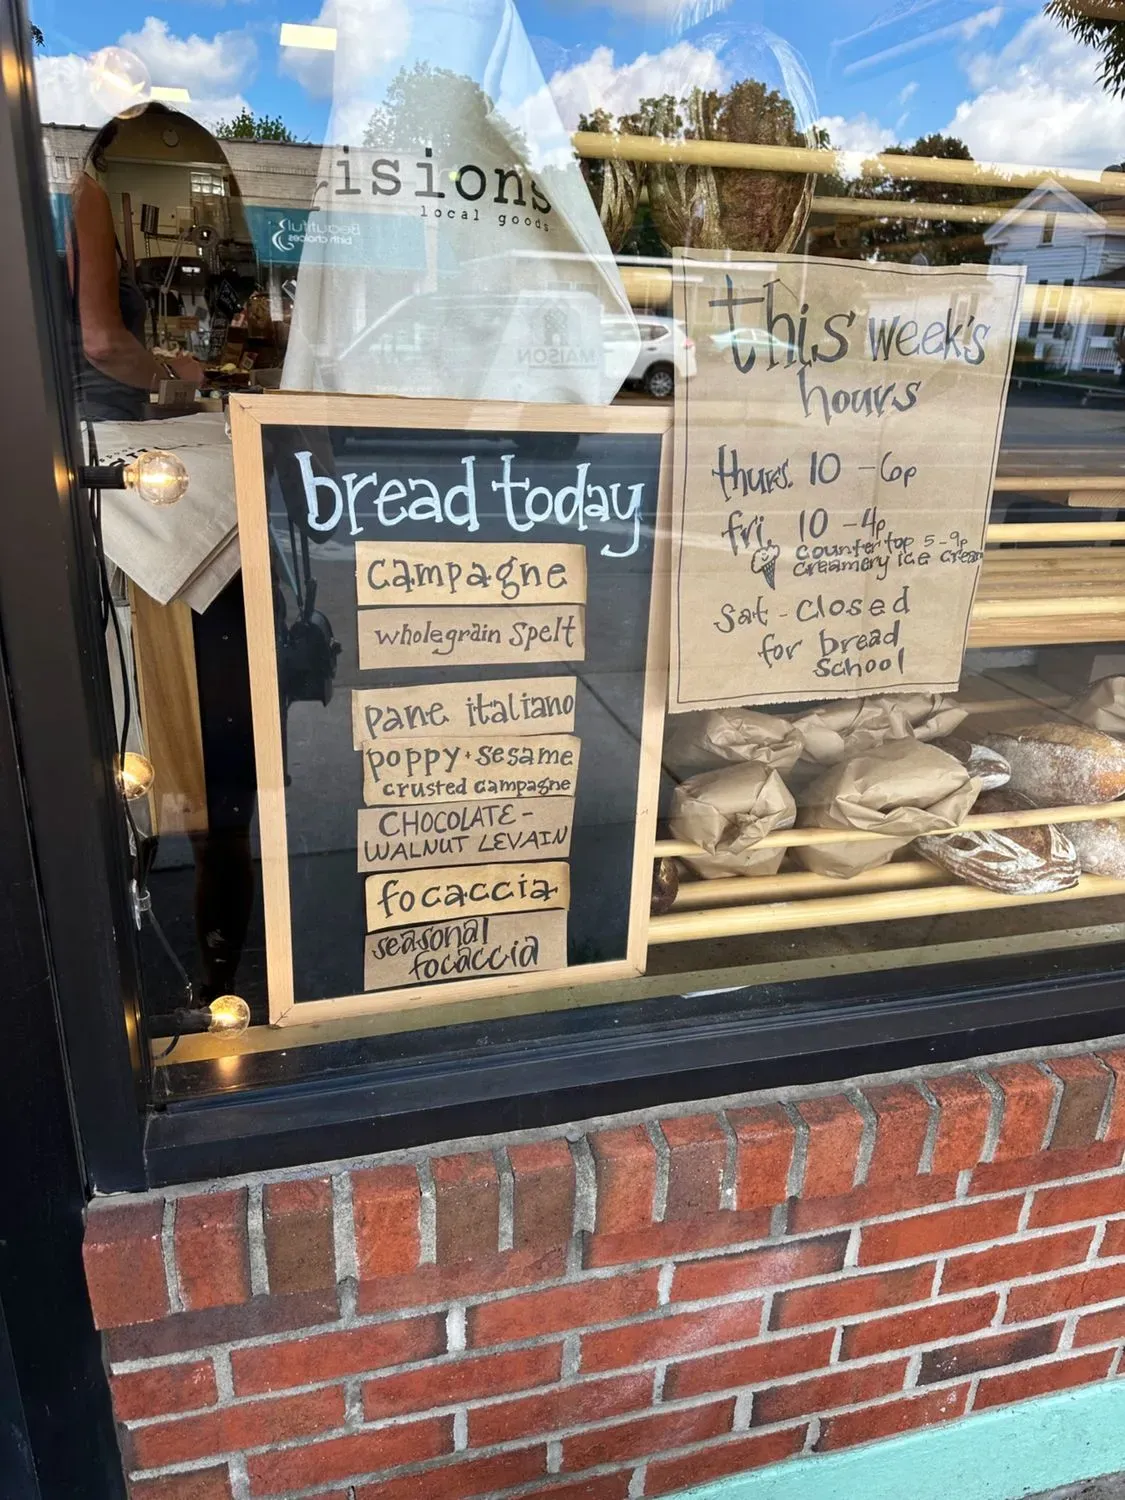 isions
local goods
Beautiful
birth choices
MAISON
bread today
campagne
wholegrain spelt
pane italiano
poppy + sesame
crusted campagne
CHOCOLATE -
WALNUT LEVAIN
focaccia
seasonal
focaccia
this week's
hours
thurs. 10 - 6p
fri. 10 - 4p
countertop 5 - 9p
creamery ice cream
sat - closed
for bread
school